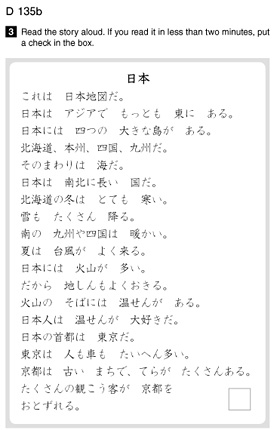 D 135b
3 Read the story aloud. If you read it in less than two minutes, put
a check in the box.
日本
これは 日本地図だ。
日本は アジアで もっとも 東に ある。
日本には 四つの 大きな島が ある。
北海道、本州、四国、九州だ。
そのまわりは 海だ。
日本は 南北に長い 国だ。
北海道の冬は とても 寒い。
雪も たくさん 降る。
南の 九州や四国は 暖かい。
夏は 台風が よく来る。
日本には 火山が 多い。
だから 地しんもよくおきる。
火山の そばには 温せんが ある。
日本人は 温せんが 大好きだ。
日本の首都は 東京だ。
東京は 人も車も たいへん多い。
京都は 古い まちで、てらが たくさんある。
たくさんの観こう客が 京都を
おとずれる。